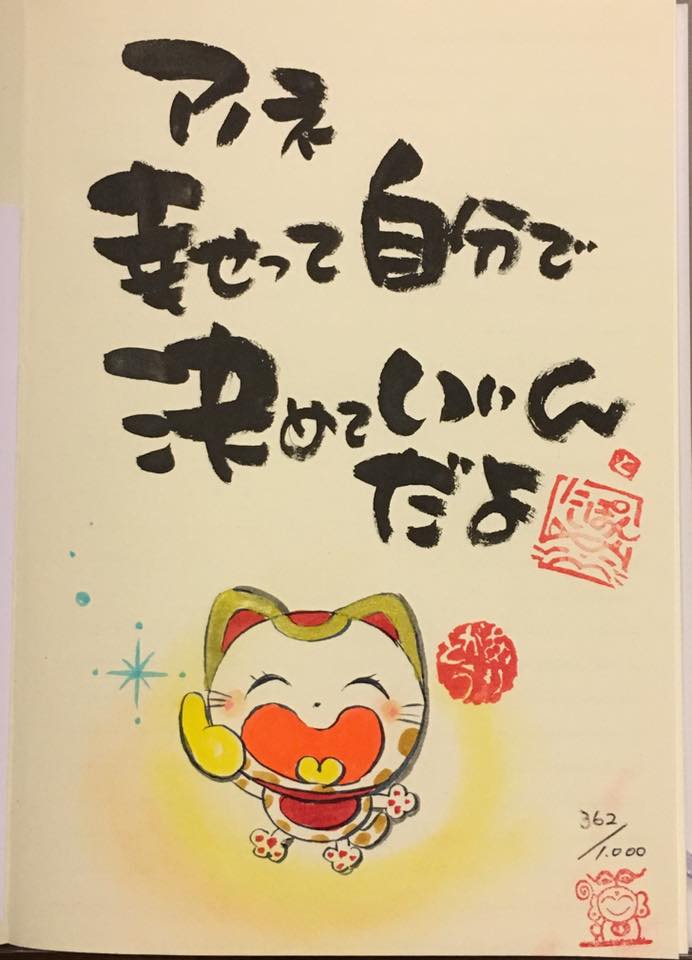 アノネ
幸せって自分で
決めていいん
だよ
と
ありがとう
362
/1.000